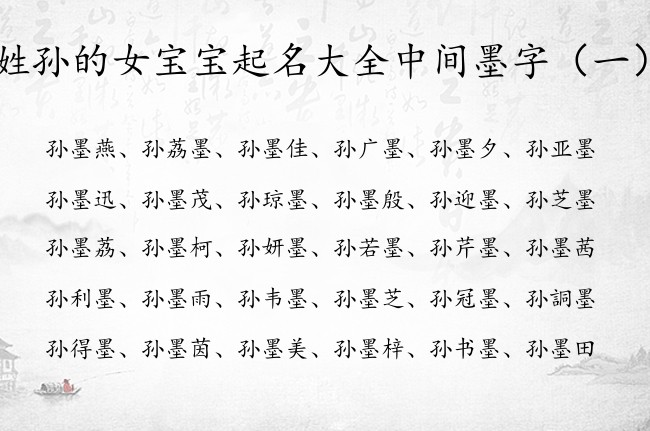 姓孙的女宝宝起名大全中间墨字（一）
孙墨燕、孙荔墨、孙墨佳、孙广墨、孙墨夕、孙亚墨
孙墨迅、孙墨茂、孙琼墨、孙墨殷、孙迎墨、孙芝墨
孙墨荔、孙墨柯、孙妍墨、孙若墨、孙芹墨、孙墨茜
孙利墨、孙墨雨、孙韦墨、孙墨芝、孙冠墨、孙詞墨
孙得墨、孙墨茵、孙墨美、孙墨梓、孙书墨、孙墨田